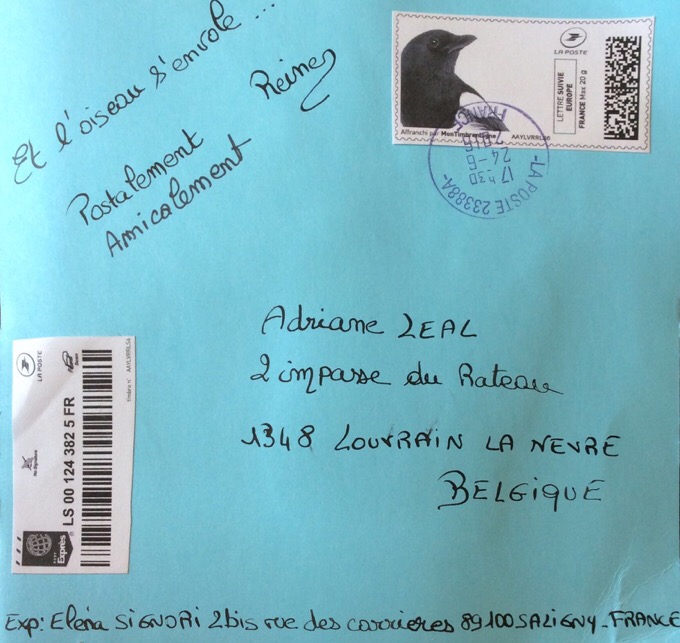 Et l'oiseau s'envole ...
Reinez
Postalement
Amicalement
LA POSTE
LETTRE SUIVIE
EUROPE
FRANCE Max 20 g
Affranchi par MonTimbrenLigne
AAYLVRRLS6
-LA POSTE 23388A-
17 h 30
24-6
2016
FRANCE
Adriane LEAL
2 impasse du Rateau
1348 LOUVRAIN LA NEVRE
BELGIQUE
LA POSTE
timbre n° AAYLVRRLS6
No Signature
LS 00 124 382 5 FR
Exprès
Exp: Eléna SIGNORI 2bis rue des carrieres 89100 SALIGNY - FRANCE